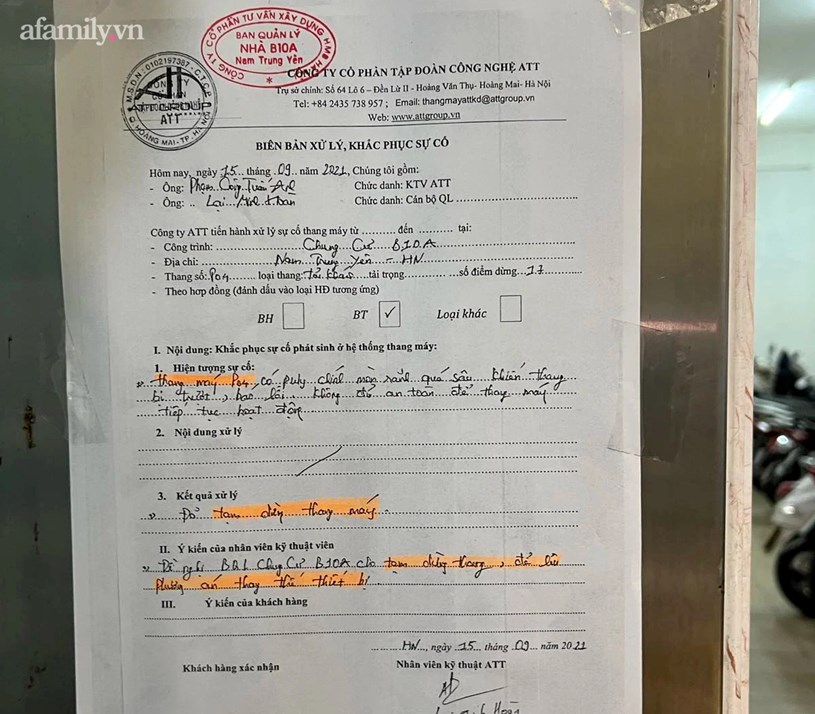 afamily.vn
CÔNG TY CỔ PHẦN TƯ VẤN XÂY DỰNG
BAN QUẢN LÝ
NHÀ B10A
Nam Trung Yên
M.S.D.N: 0102197387 - C.T.C.P
ATT
Q. HOÀNG MAI - TP. HÀ NỘI
CÔNG TY CỔ PHẦN TẬP ĐOÀN CÔNG NGHỆ ATT
Trụ sở chính: Số 64 Lô 6 – Đền Lừ II - Hoàng Văn Thụ- Hoàng Mai- Hà Nội
Tel: +84 2435 738 957 ; Email: thangmayattkd@attgroup.vn
Web: www.attgroup.vn
BIÊN BẢN XỬ LÝ, KHẮC PHỤC SỰ CỐ
Hôm nay, ngày 15 tháng .09.. năm 2021, Chúng tôi gồm:
- Ông: Phạm Công Tuấn Chức danh: KTV ATT
- Ông: .. Lại Chức danh: Cán bộ QL
Công ty ATT tiến hành xử lý sự cố thang máy từ ........... đến .......... tại:
- Công trình: Chung Cư B10A
- Địa chỉ: Nam Trung Yên - HN
- Thang số: P04 loại thang: tải khách tải trọng ........ số điểm dừng 17
- Theo hợp đồng (đánh dấu vào loại HĐ tương ứng)
BH BT ✓ Loại khác
I. Nội dung: Khắc phục sự cố phát sinh ở hệ thống thang máy:
1. Hiện tượng sự cố:
thang máy P04 có puly chính mòn rãnh quá sâu khiến thang
bị trượt, không đủ an toàn để thang máy
tiếp tục hoạt động
2. Nội dung xử lý
3. Kết quả xử lý
tạm dừng thang máy
II. Ý kiến của nhân viên kỹ thuật viên
Đề nghị BQL Chung Cư B10A cho tạm dừng thang, để
phương án thay thế thiết bị
III. Ý kiến của khách hàng
HN, ngày 15 tháng 09 năm 2021
Khách hàng xác nhận Nhân viên kỹ thuật ATT